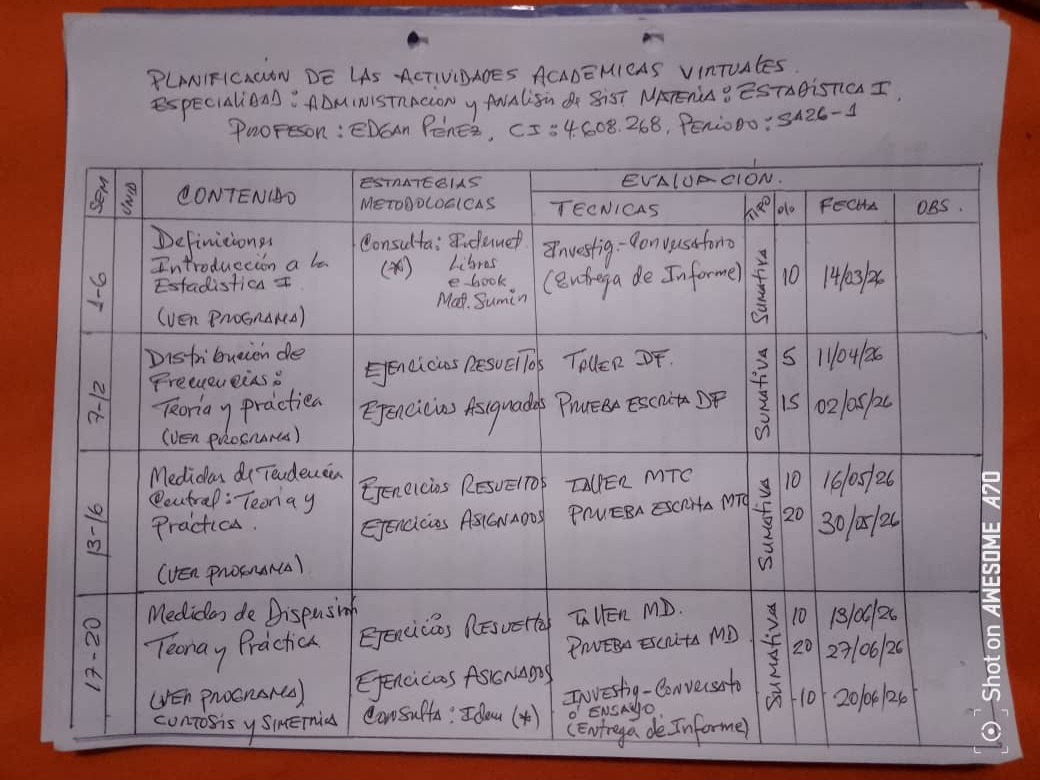 PLANIFICACIÓN DE LAS ACTIVIDADES ACADEMICAS VIRTUALES.
ESPECIALIDAD: ADMINISTRACION y ANALISIS de SIST MATERIA: ESTADÍSTICA I.
PROFESOR: EDGAR PÉREZ, CI: 4.608.268, PERIODO: SA26-1
SEM UNID CONTENIDO ESTRATEGIAS METODOLOGICAS EVALUACIÓN.
TECNICAS TIPO % FECHA OBS.
1-6
Definiciones
Introducción a la
Estadística I
(VER PROGRAMA)
Consulta: Internet
(*) Libros
e-book
Mat. Sumin
Investig-Conversatorio
(Entrega de Informe)
Sumativa
10 14/03/26
7-12
Distribución de
Frecuencias:
Teoría y práctica
(VER PROGRAMA)
EJERCICIOS RESUELTOS
EJERCICIOS Asignados
TALLER DF.
PRUEBA ESCRITA DF
SUMATIVA
5 11/04/26
15 02/05/26
13-16
Medidas de Tendencia
Central: Teoría y
Práctica.
(VER PROGRAMA)
EJERCICIOS RESUELTOS
EJERCICIOS ASIGNADOS
TALLER MTC
PRUEBA ESCRITA MTC
SUMATIVA
10 16/05/26
20 30/05/26
17-20
Medidas de Dispersión
Teoría y Práctica
(VER PROGRAMA)
CURTOSIS y SIMETRIA
EJERCICIOS RESUELTOS
EJERCICIOS ASIGNADOS
Consulta: Idem (*)
TALLER MD.
PRUEBA ESCRITA MD
INVESTIG-CONVERSATO
ó ENSAYO
(Entrega de Informe)
SUMATIVA
10 13/06/26
20 27/06/26
10 20/06/26
Shot on AWESOME A70